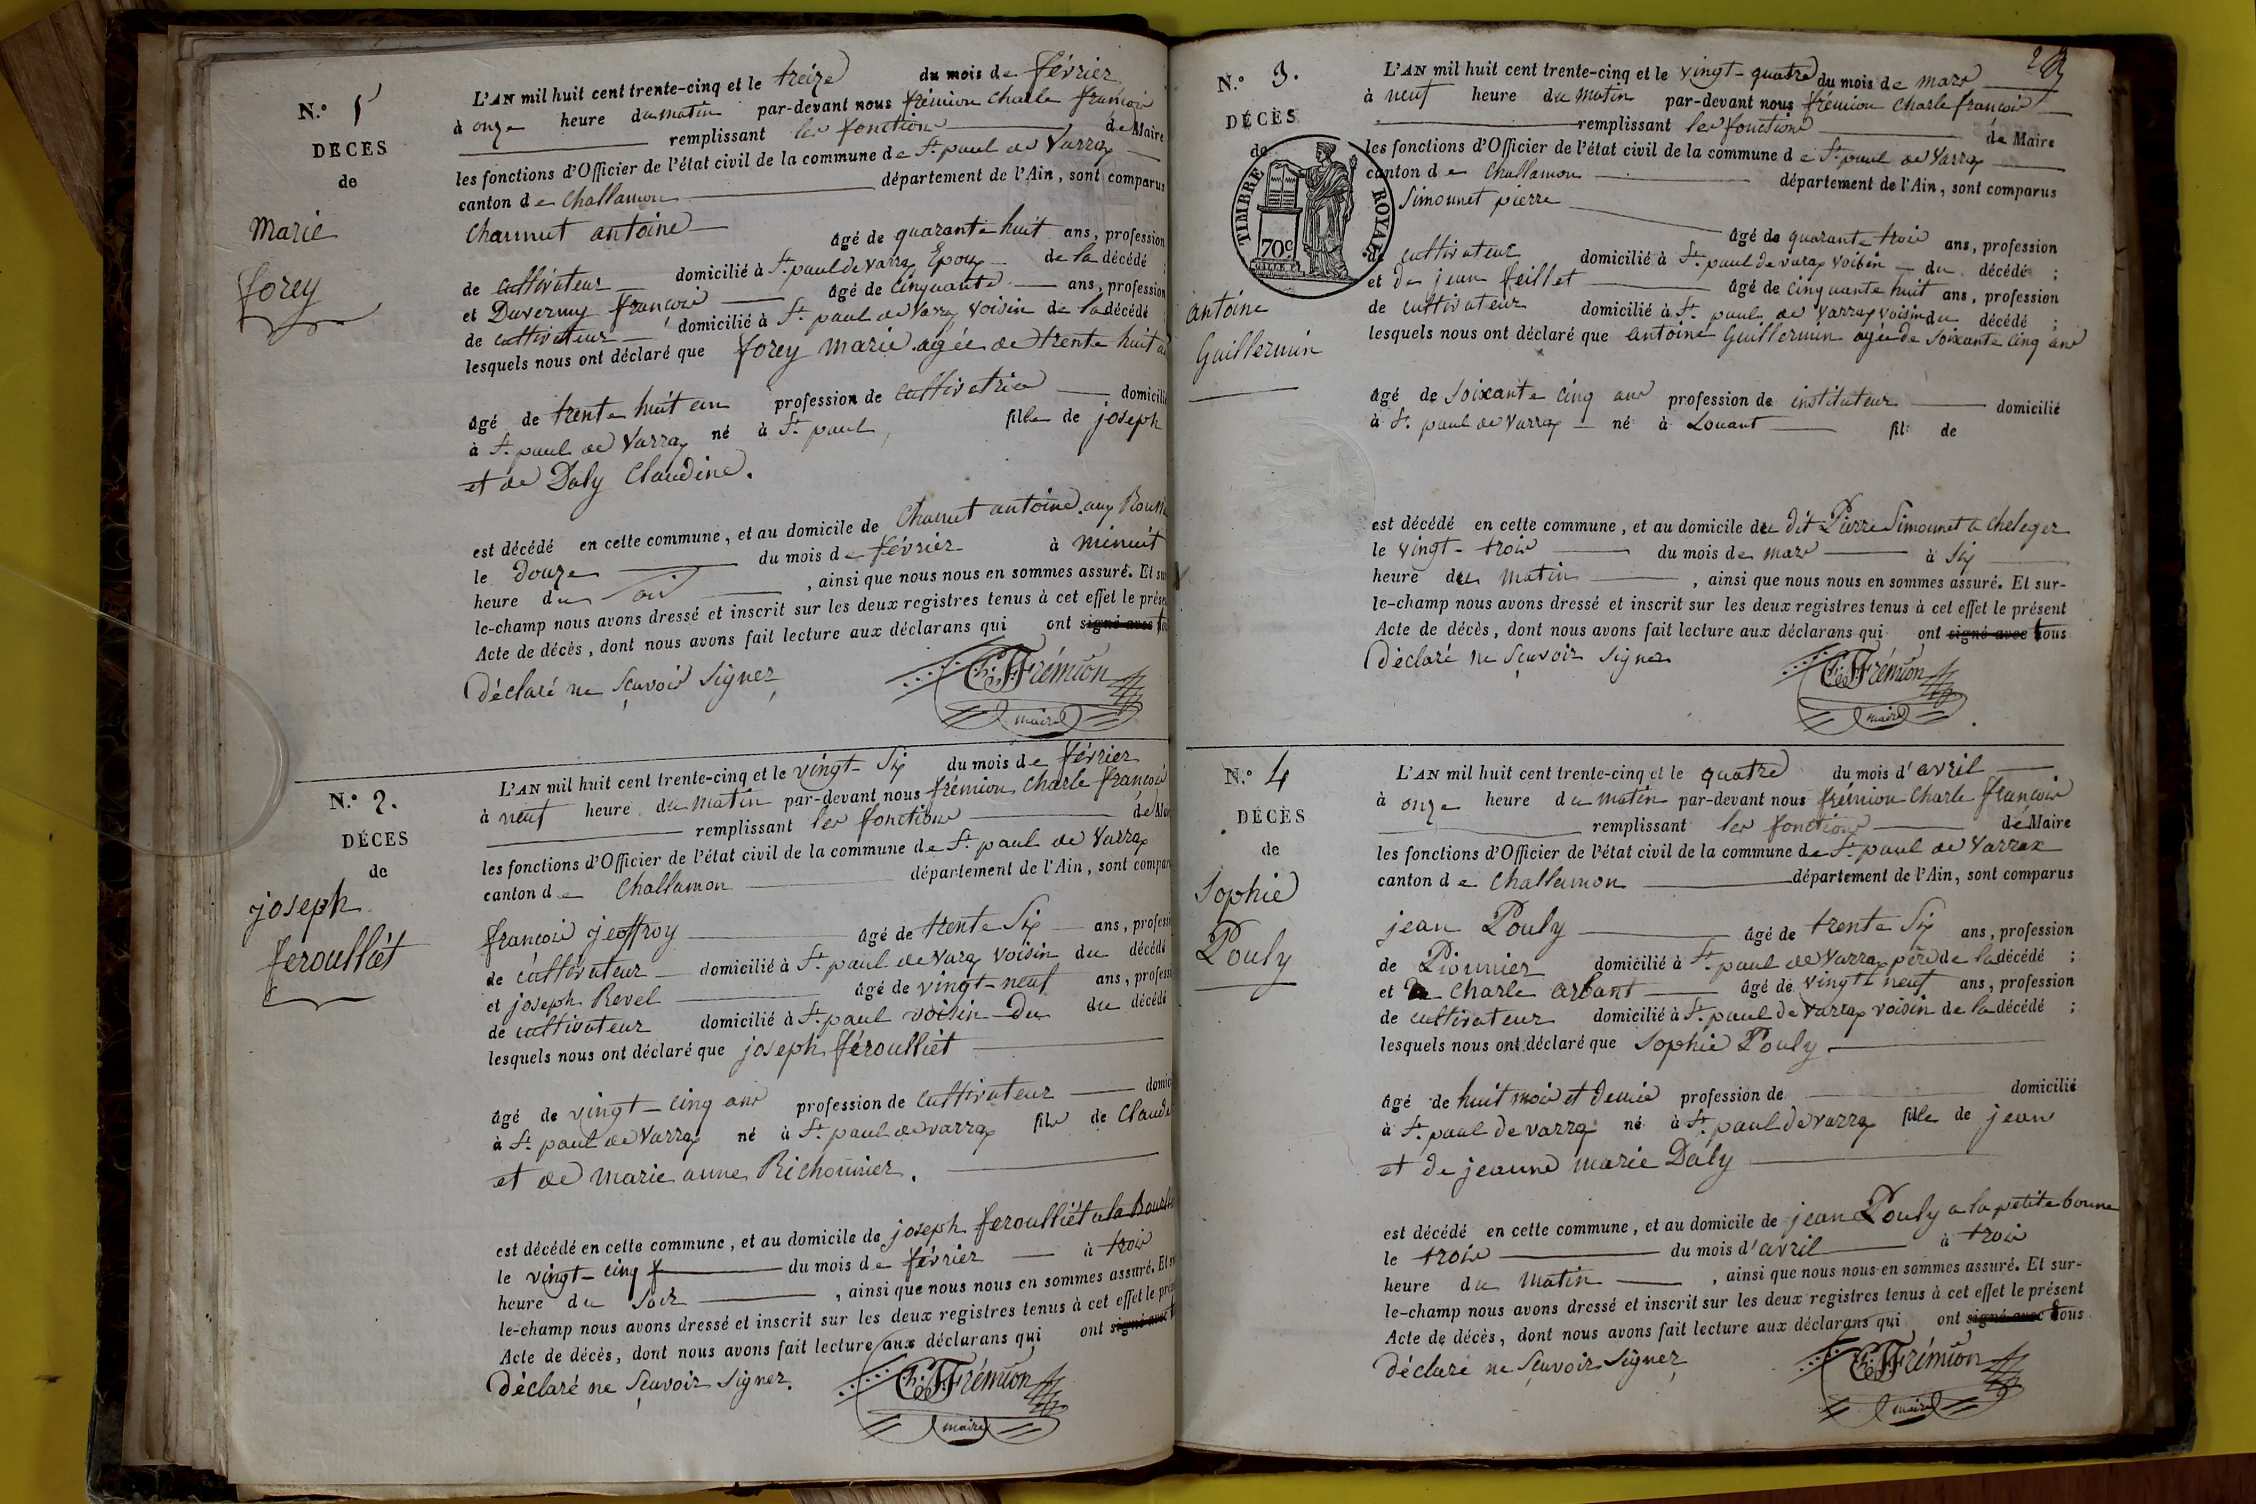 N.° 1
DÉCES
de
Marie
forey
L'AN mil huit cent trente-cinq et le treize du mois de février
à onze heure du matin par-devant nous frémion Charle françois
remplissant les fonctions de Maire
les fonctions d'Officier de l'état civil de la commune de St. paul de Varrax
canton de Challamon département de l'Ain, sont comparus
Charmet antoine âgé de quarante huit ans, profession
de cultivateur domicilié à St. paul de varrax Epoux de la décédé ;
et Duvernay françois âgé de cinquante ans, profession
de cultivateur domicilié à St. paul de Varax voisin de la décédé ;
lesquels nous ont déclaré que forey marie agée de trente huit
âgé de trente huit an profession de cultivatrice domicilié
à St. paul de Varrax né à St. paul, fille de joseph
et de Daly Claudine.
est décédé en cette commune, et au domicile de antoine aux
le douze du mois de février à minuit
heure du soir , ainsi que nous nous en sommes assuré. Et sur
le-champ nous avons dressé et inscrit sur les deux registres tenus à cet effet le présent
Acte de décès, dont nous avons fait lecture aux déclarans qui ont signé avec
déclaré ne sçavoir signer
Ch. F. Frémion
maire
N.° 2.
DÉCES
de
joseph
feroulliét
L'AN mil huit cent trente-cinq et le vingt-six du mois de février
à neuf heure du matin par-devant nous frémion Charle françois
remplissant les fonctions de Maire
les fonctions d'Officier de l'état civil de la commune de St. paul de Varrax
canton de Challamon département de l'Ain, sont comparus
françois jeoffroy âgé de trente six ans, profession
de cultivateur domicilié à St. paul de Varax voisin du décédé
et joseph Revel âgé de vingt-neuf ans, profession
de cultivateur domicilié à St. paul voisin du du décédé
lesquels nous ont déclaré que joseph féroulliét
âgé de vingt-cinq ans profession de cultivateur domicilié
à St. paul de Varrax né à St. paul de varrax fils de Claude
et de marie anne Richonnier.
est décédé en cette commune, et au domicile de joseph feroulliét a la
le vingt-cinq du mois de février à trois
heure du soir , ainsi que nous nous en sommes assuré. Et sur
le-champ nous avons dressé et inscrit sur les deux registres tenus à cet effet le présent
Acte de décès, dont nous avons fait lecture aux déclarans qui ont signé avec
déclaré ne sçavoir signer.
Ch. F. Frémion
maire
N.° 3.
DÉCÈS
de
TIMBRE ROYAL
70c
antoine
Guillermin
L'AN mil huit cent trente-cinq et le vingt-quatre du mois de mars
à neuf heure du matin par-devant nous frémion Charle françois
remplissant les fonctions de Maire
les fonctions d'Officier de l'état civil de la commune de St. paul de Varrax
canton de Challamon département de l'Ain, sont comparus
Simonnet pierre âgé de quarante trois ans, profession
de cultivateur domicilié à St. paul de varax voisin du décédé ;
et de jean feillet âgé de cinquante huit ans, profession
de cultivateur domicilié à St. paul de Varrax voisin du décédé ;
lesquels nous ont déclaré que antoine Guillermin agée de soixante cinq ans
âgé de soixante cinq ans profession de instituteur domicilié
à St. paul de Varrax né à Louant fil de
est décédé en cette commune, et au domicile du dit Pierre Simonnet a cheleger
le vingt-trois du mois de mars à six
heure du matin , ainsi que nous nous en sommes assuré. Et sur-
le-champ nous avons dressé et inscrit sur les deux registres tenus à cet effet le présent
Acte de décès, dont nous avons fait lecture aux déclarans qui ont signé avec tous
déclaré ne sçavoir signer
Ch. F. Frémion
maire
N.° 4
DÉCÈS
de
Sophie
Pouly
L'AN mil huit cent trente-cinq et le quatre du mois d'avril
à onze heure du matin par-devant nous frémion Charle françois
remplissant les fonctions de Maire
les fonctions d'Officier de l'état civil de la commune de St. paul de Varrax
canton de Challamon département de l'Ain, sont comparus
jean Pouly âgé de trente six ans, profession
de Pionnier domicilié à St. paul de Varrax père de la décédé ;
et de Charle arbant âgé de vingt neuf ans, profession
de cultivateur domicilié à St. paul de Varrax voisin de la décédé ;
lesquels nous ont déclaré que Sophie Pouly
âgé de huit mois et demie profession de domicilié
à St. paul de varrax né à St. paul de varrax fille de jean
et de jeanne marie Daly
est décédé en cette commune, et au domicile de jean Pouly a la petite bonne
le trois du mois d'avril à trois
heure du matin , ainsi que nous nous en sommes assuré. Et sur-
le-champ nous avons dressé et inscrit sur les deux registres tenus à cet effet le présent
Acte de décès, dont nous avons fait lecture aux déclarans qui ont signé avec tous
déclaré ne sçavoir signer
Ch. F. Frémion
maire